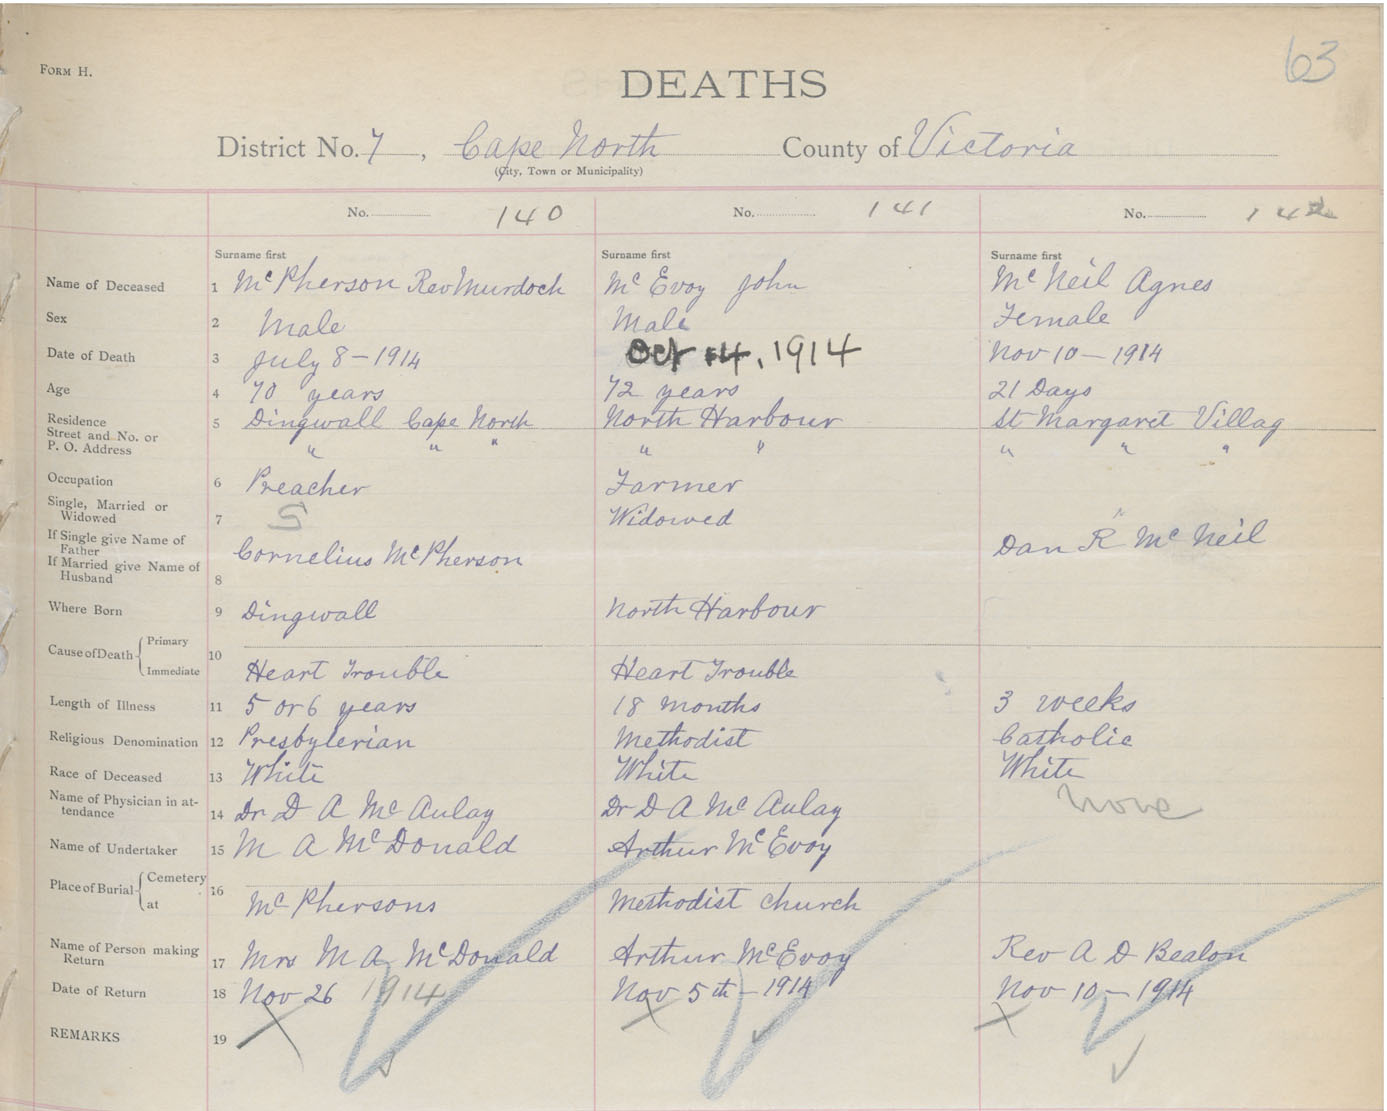 63
FORM H.
DEATHS
District No. 7, Cape North County of Victoria
(City, Town or Municipality)
No. 140 No. 141 No.
Surname first Surname first Surname first
Name of Deceased 1 McPherson Rev Murdoch McEvoy John McNeil Agnes
Sex 2 Male Male Female
Date of Death 3 July 8 - 1914 Oct 14, 1914 Nov 10 - 1914
Age 4 70 years 72 years 21 Days
Residence Street and No. or P. O. Address 5 Dingwall Cape North North Harbour St Margaret Villag
" " " " " " " "
Occupation 6 Preacher Farmer
Single, Married or Widowed 7 S Widowed "
If Single give Name of Father Cornelius McPherson Dan R McNeil
If Married give Name of Husband 8
Where Born 9 Dingwall North Harbour
Cause of Death Primary 10
Immediate Heart Trouble Heart Trouble
Length of Illness 11 5 or 6 years 18 months 3 weeks
Religious Denomination 12 Presbyterian Methodist Catholic
Race of Deceased 13 White White White
Name of Physician in attendance 14 Dr D A McAulay Dr D A McAulay None
Name of Undertaker 15 M A McDonald Arthur McEvoy
Place of Burial Cemetery 16
at McPhersons Methodist church
Name of Person making Return 17 Mrs M A McDonald Arthur McEvoy Rev A D
Date of Return 18 Nov 26 1914 Nov 5th - 1914 Nov 10 - 1914
REMARKS 19